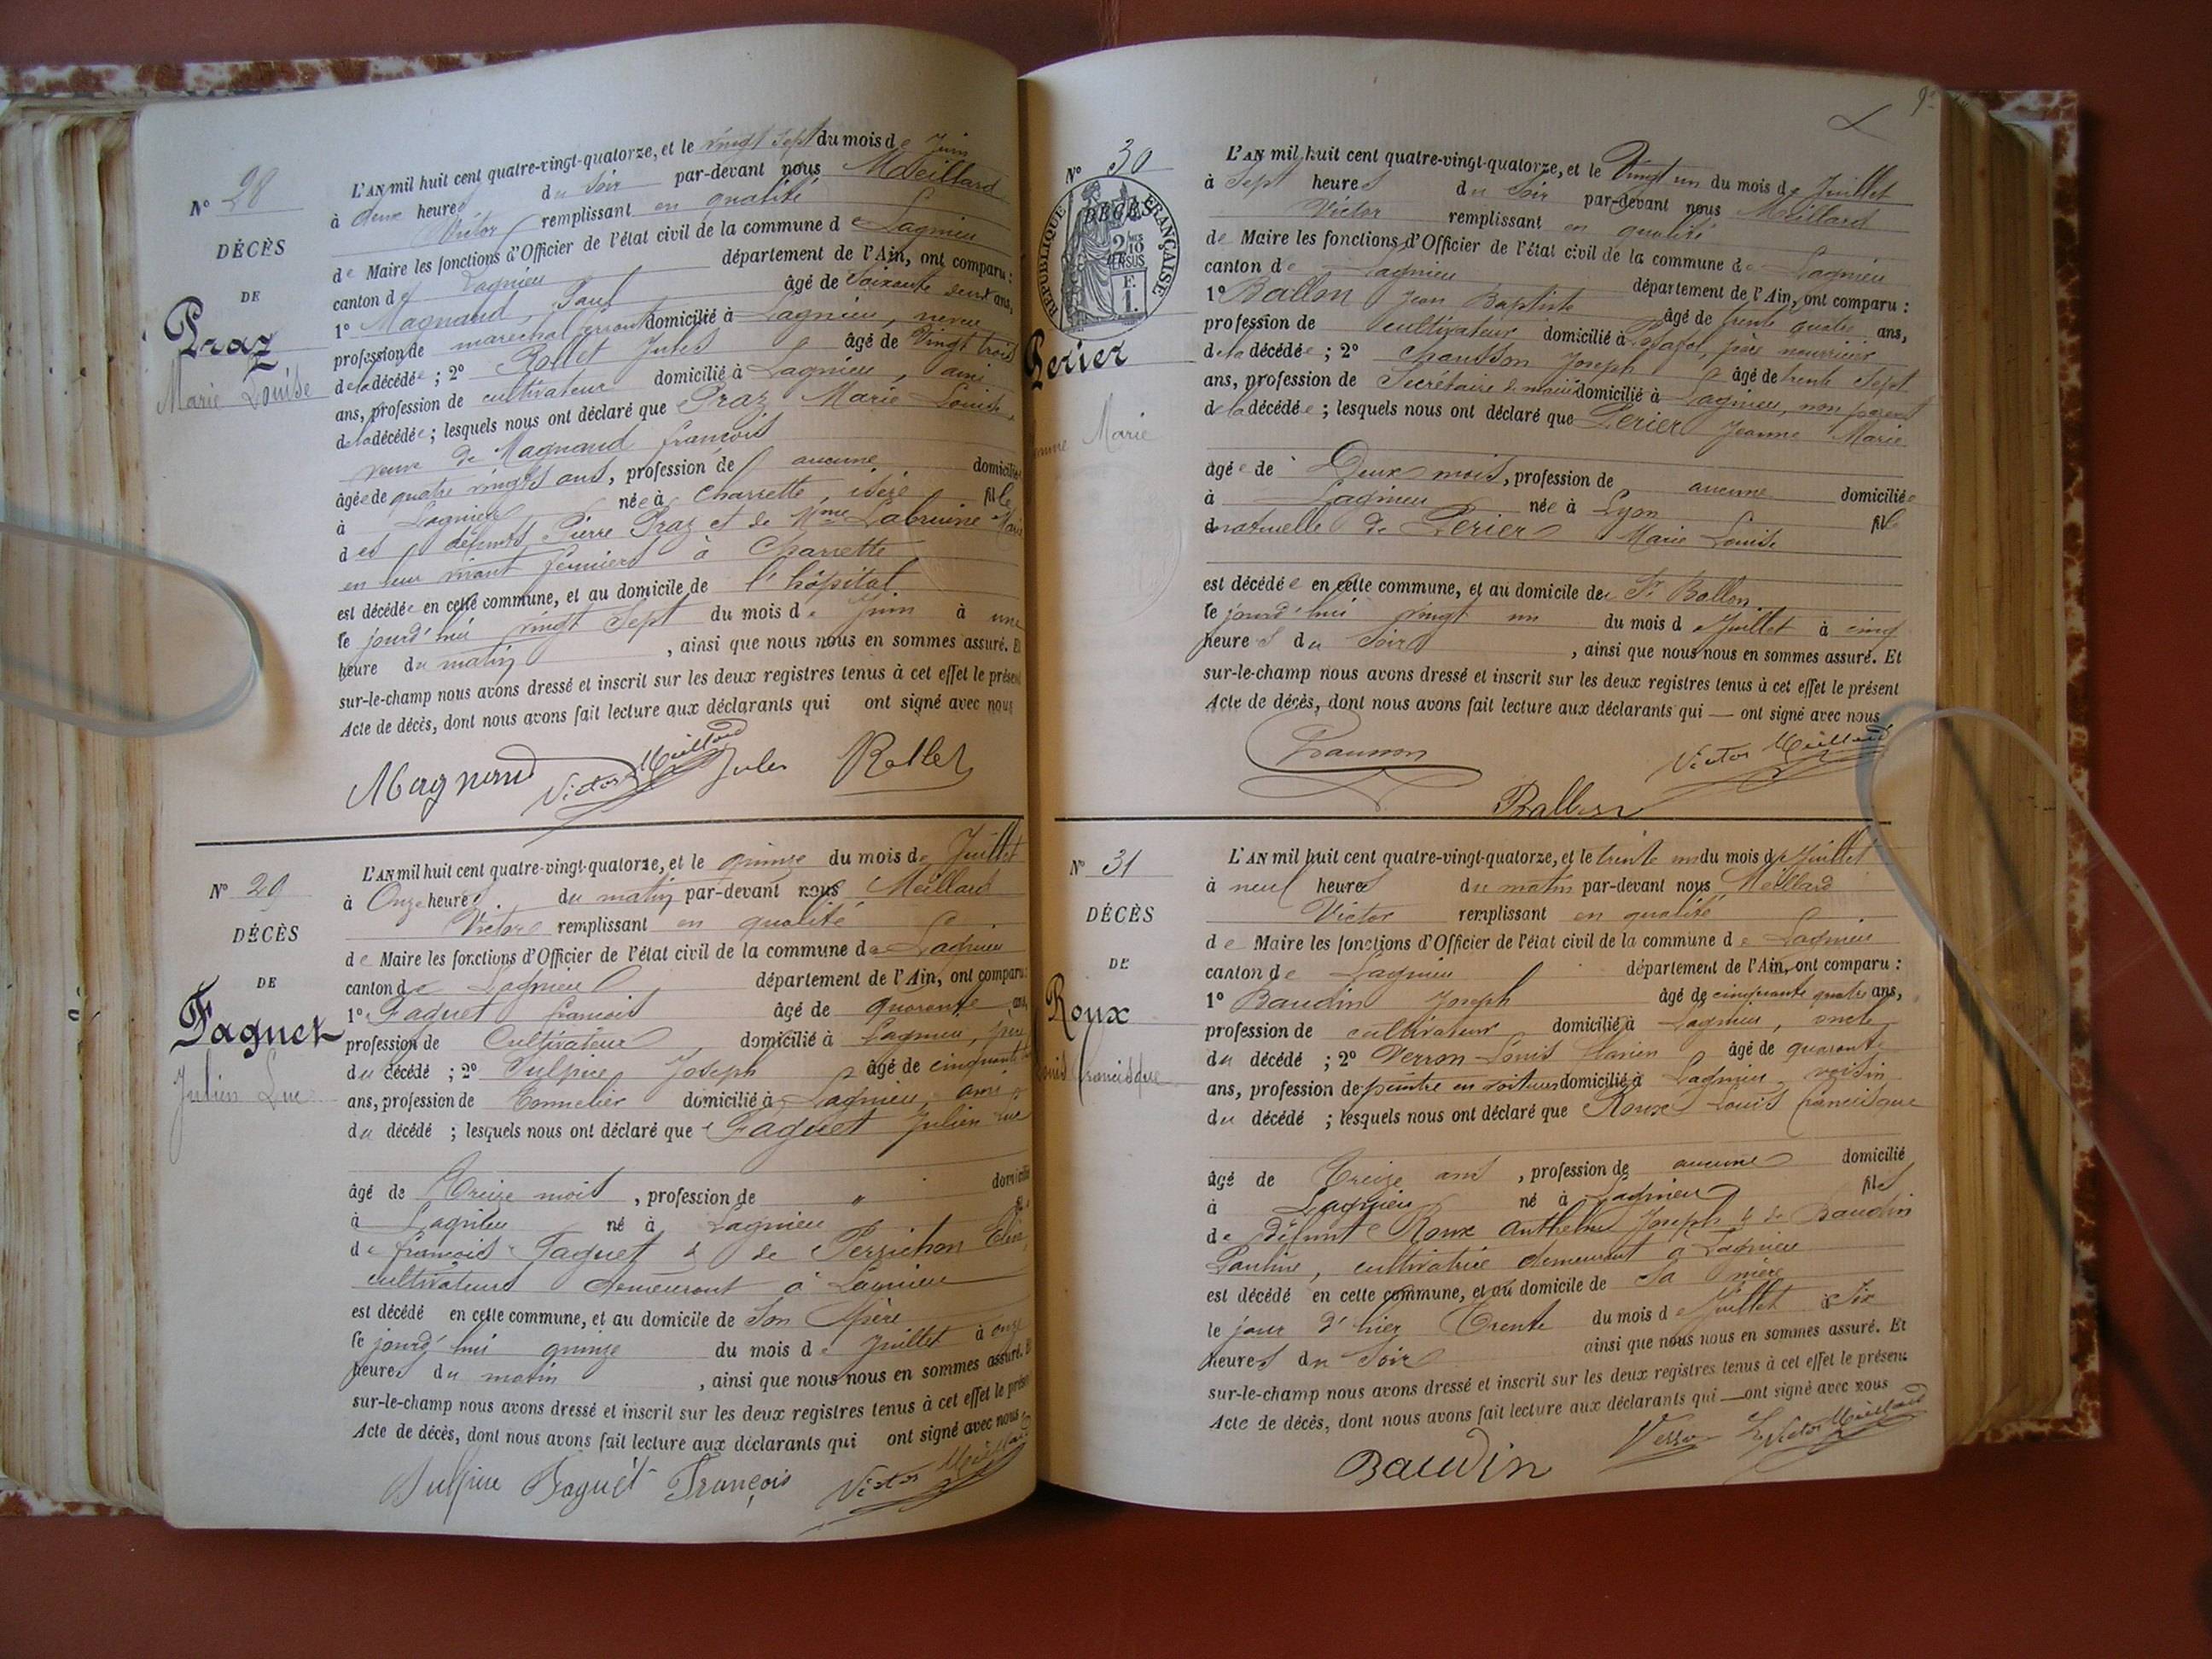 N° 28
DÉCÈS
DE
Praz
Marie Louise
L'AN mil huit cent quatre-vingt-quatorze, et le vingt sept du mois de Juin
à deux heures du soir par-devant nous Meillard
Victor remplissant en qualité
de Maire les fonctions d'Officier de l'état civil de la commune de Lagnieu
canton de Lagnieu département de l'Ain, ont comparu :
1° Magnand, Paul âgé de soixante deux ans,
profession de marechal ferrant domicilié à Lagnieu, neveu
de la décédée ; 2° Rollet Jules âgé de vingt trois
ans, profession de cultivateur domicilié à Lagnieu, ami
de la décédée ; lesquels nous ont déclaré que Praz Marie Louise,
veuve de Magnand françois
âgée de quatre vingts ans, profession de aucune domiciliée
à Lagnieu née à Charrette, isère fille
des défunts Pierre Praz et de Mme Labruine Marie
en leur vivant fermiers à Charrette
est décédée en cette commune, et au domicile de l'hôpital
le jourd'hui vingt sept du mois de Juin à une
heure du matin , ainsi que nous nous en sommes assuré. Et
sur-le-champ nous avons dressé et inscrit sur les deux registres tenus à cet effet le présent
Acte de décès, dont nous avons fait lecture aux déclarants qui ont signé avec nous
Magnand Victor Meillard Jules Rollet
N° 29
DÉCÈS
DE
Faguet
Julien Luc
L'AN mil huit cent quatre-vingt-quatorze, et le quinze du mois de Juillet
à Onze heures du matin par-devant nous Meillard
Victor remplissant en qualité
de Maire les fonctions d'Officier de l'état civil de la commune de Lagnieu
canton de Lagnieu département de l'Ain, ont comparu :
1° Faguet francois âgé de quarante ans,
profession de Cultivateur domicilié à Lagnieu, père
du décédé ; 2° Sulpice Joseph âgé de cinquante
ans, profession de Tonnelier domicilié à Lagnieu, ami
du décédé ; lesquels nous ont déclaré que Faguet Julien Luc
âgé de Treize mois , profession de " domicilié
à Lagnieu né à Lagnieu fils
de françois Faguet & de Perrichon
cultivateurs demeurant à Lagnieu
est décédé en cette commune, et au domicile de son père
le jourd'hui quinze du mois de Juillet à onze
heures du matin , ainsi que nous nous en sommes assuré. Et
sur-le-champ nous avons dressé et inscrit sur les deux registres tenus à cet effet le présent
Acte de décès, dont nous avons fait lecture aux déclarants qui ont signé avec nous
Sulpice Faguet François Victor Meillard
N° 30
RÉPUBLIQUE FRANÇAISE
DÉCÈS
Perier
Jeanne Marie
L'AN mil huit cent quatre-vingt-quatorze, et le Vingt un du mois de Juillet
à sept heures du soir par-devant nous Meillard
Victor remplissant en qualité
de Maire les fonctions d'Officier de l'état civil de la commune de Lagnieu
canton de Lagnieu département de l'Ain, ont comparu :
1° Ballon Jean Baptiste âgé de trente quatre ans,
profession de cultivateur domicilié à père nourricier
de la décédée ; 2° Chausson Joseph âgé de trente sept
ans, profession de Secrétaire de mairie domicilié à Lagnieu, non parent
de la décédée ; lesquels nous ont déclaré que Perier Jeanne Marie
âgée de Deux mois, profession de aucune domiciliée
à Lagnieu née à Lyon fille
naturelle de Perier Marie Louise
est décédée en cette commune, et au domicile de Sr Ballon
le jourd'hui vingt un du mois de Juillet à cinq
heures du soir , ainsi que nous nous en sommes assuré. Et
sur-le-champ nous avons dressé et inscrit sur les deux registres tenus à cet effet le présent
Acte de décès, dont nous avons fait lecture aux déclarants qui — ont signé avec nous
Chausson Victor Meillard
Ballon
N° 31
DÉCÈS
DE
Roux
Louis francisque
L'AN mil huit cent quatre-vingt-quatorze, et le trente un du mois de Juillet
à neuf heures du matin par-devant nous Meillard
Victor remplissant en qualité
de Maire les fonctions d'Officier de l'état civil de la commune de Lagnieu
canton de Lagnieu département de l'Ain, ont comparu :
1° Baudin Joseph âgé de cinquante quatre ans,
profession de cultivateur domicilié à Lagnieu, oncle
du décédé ; 2° Verron Louis âgé de quarante
ans, profession de peintre en voitures domicilié à Lagnieu voisin
du décédé ; lesquels nous ont déclaré que Roux Louis francisque
âgé de Treize ans , profession de aucune domicilié
à Lagnieu né à Lagnieu fils
de défunt Roux Anthelme Joseph & de Baudin
Pauline, cultivatrice demeurant à Lagnieu
est décédé en cette commune, et au domicile de sa mère
le jour d'hier Trente du mois de Juillet à Six
heures du soir ainsi que nous nous en sommes assuré. Et
sur-le-champ nous avons dressé et inscrit sur les deux registres tenus à cet effet le présent
Acte de décès, dont nous avons fait lecture aux déclarants qui — ont signé avec nous
Baudin Verron Victor Meillard